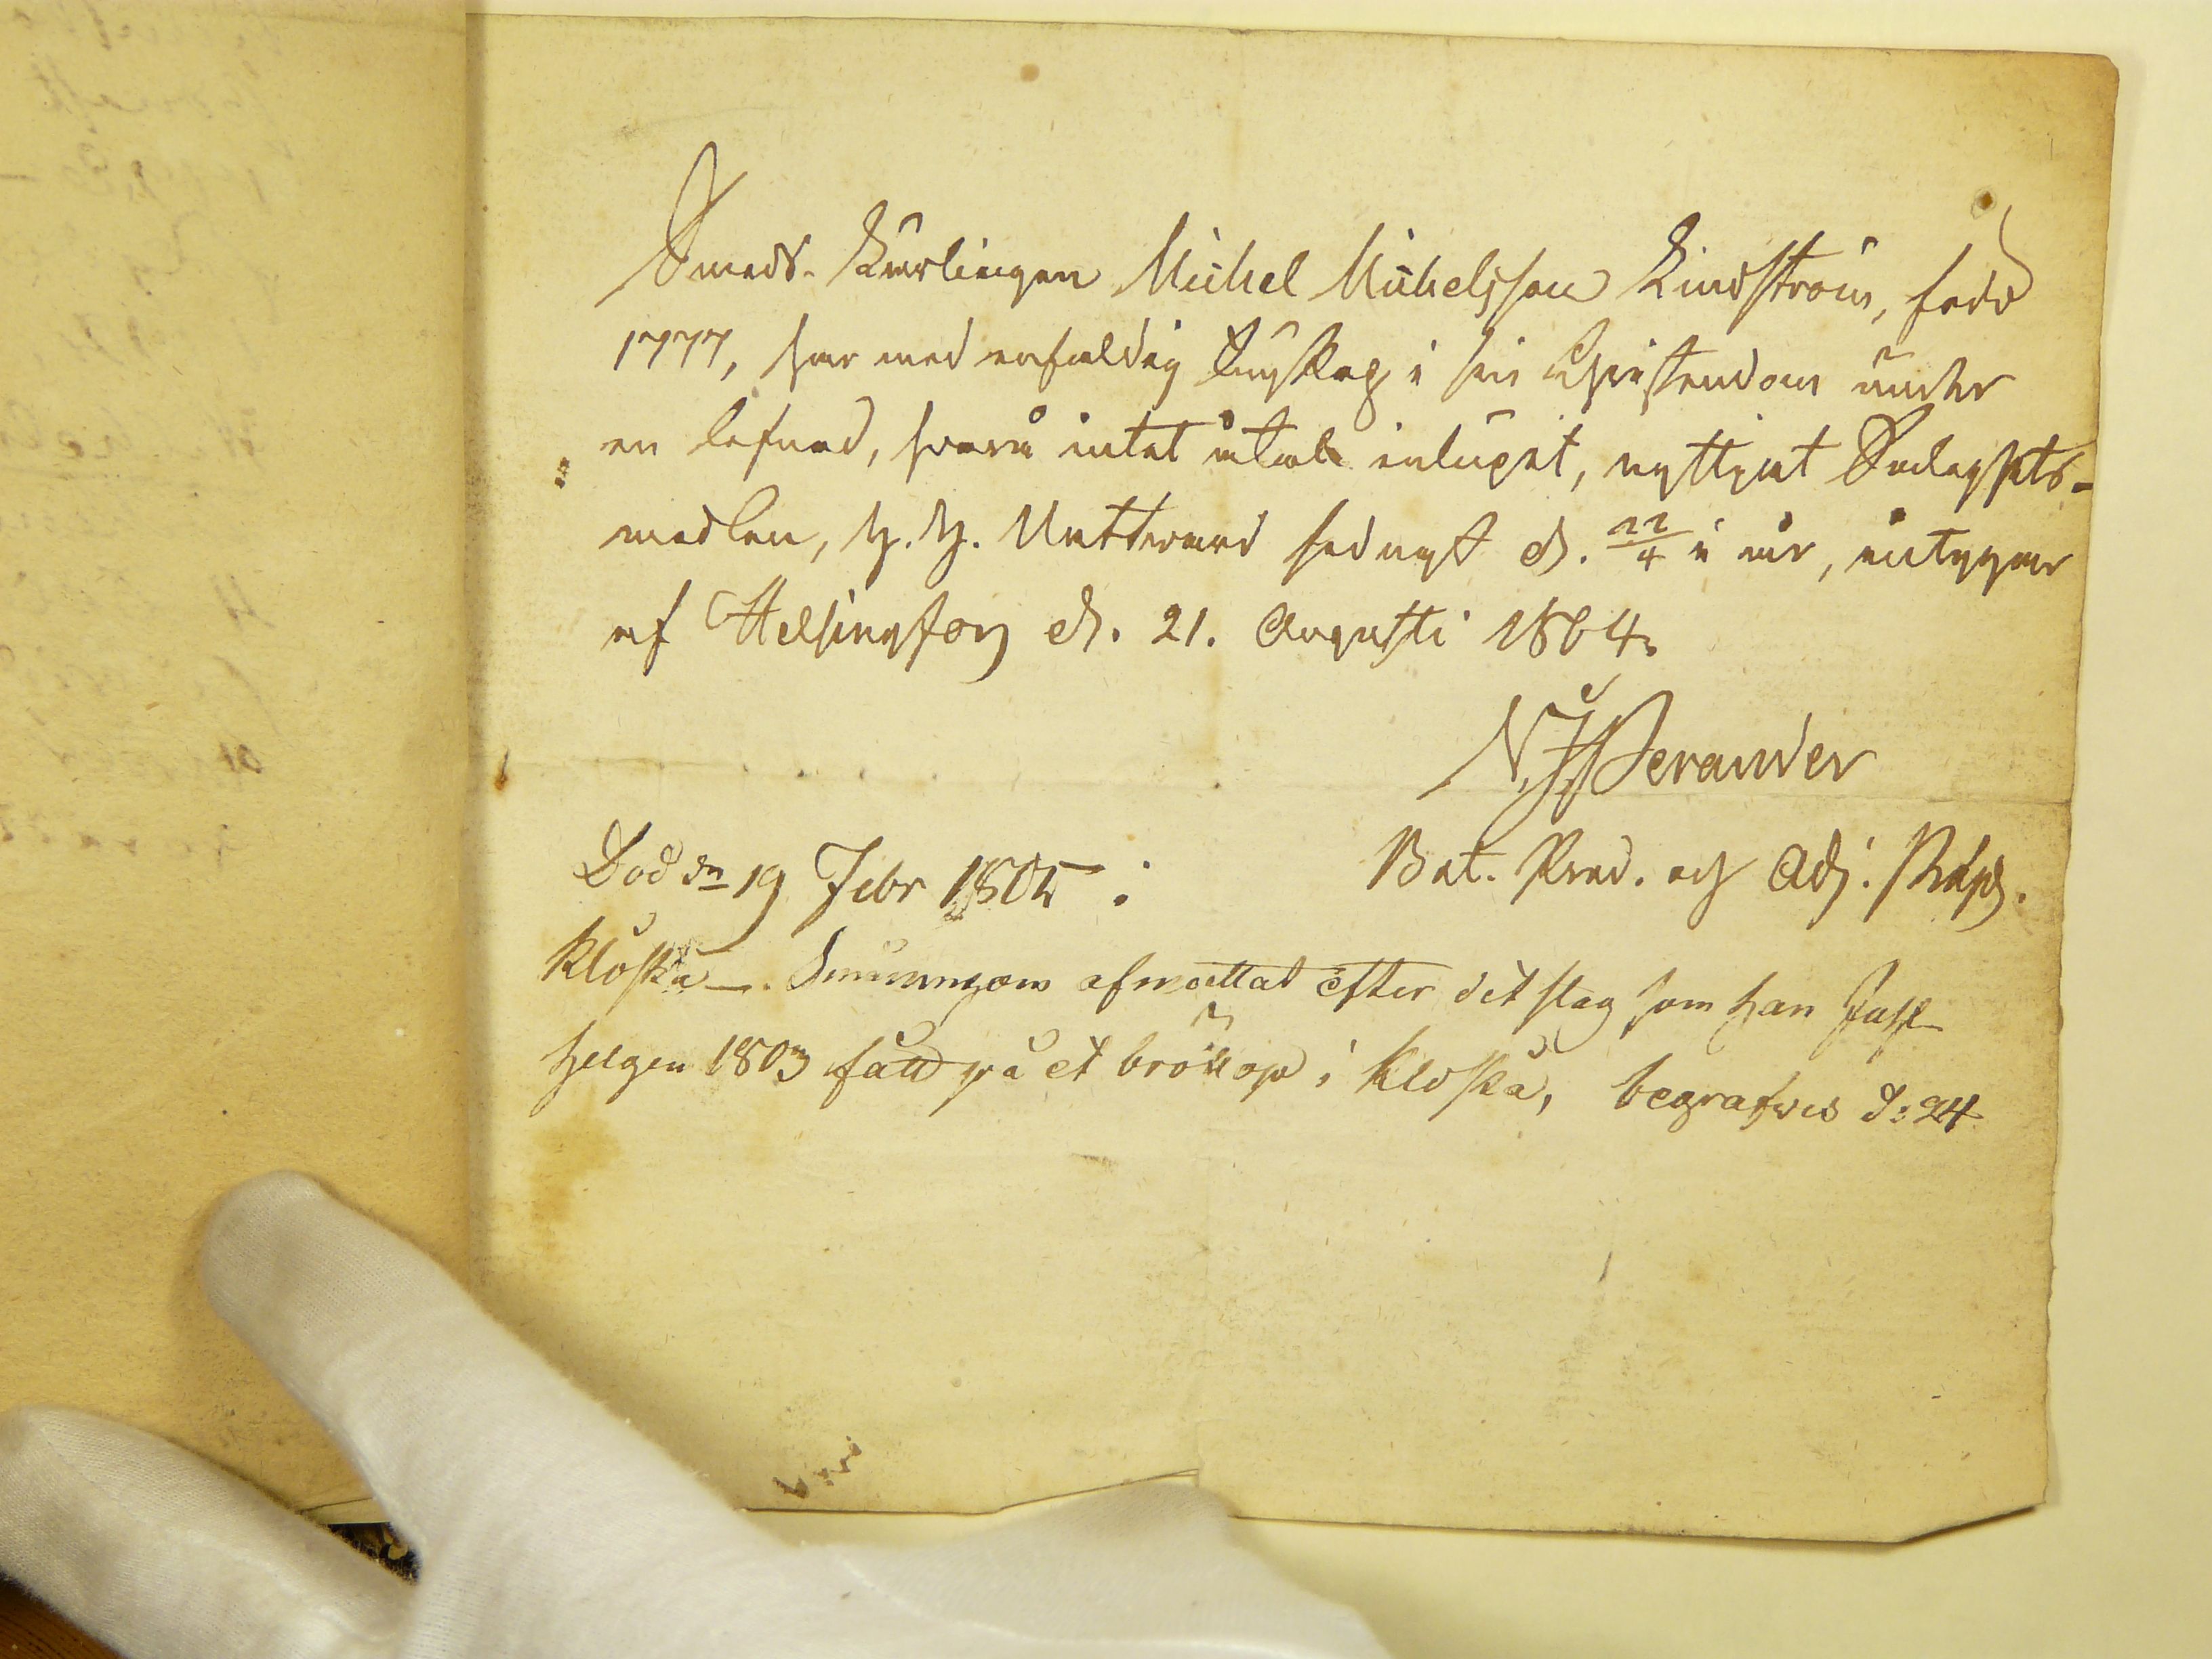 Smeds-Lärlingen Michel Michelsson Lindström, född
1777, har med enfaldig kunskap i sin Christendom under
en lefnad, hvarå intet åtal inlupit, nyttjat Salighets-
medlen, H. H. Nattward sednast d. 22/4 i år, intygar
af Helsingfors d. 21. Augusti 1804.
N. J. Perander
Bat. Pred. och Adj.
Död dn 19 Febr 1805 i
Kloskå. Småningom afmattat efter det slag som han Jul-
helgen 1803 fådt på et bröllop i Kloskå, begrafves d: 24